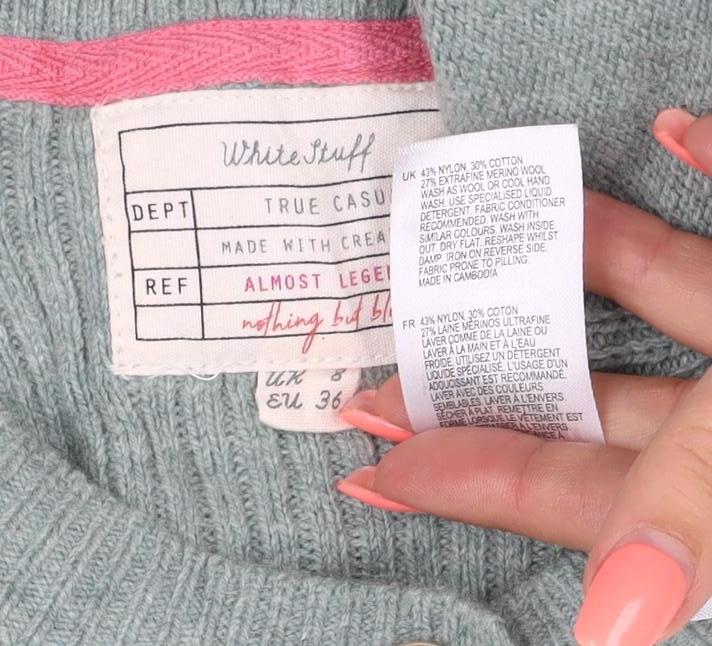 White Stuff
DEPT TRUE CASU
MADE WITH CREA
REF ALMOST LEGE
nothing but bl
UK 8
EU 36
UK 43% NYLON, 30% COTTON
27% EXTRAFINE MERINO WOOL
WASH AS WOOL OR COOL HAND
WASH. USE SPECIALISED LIQUID
DETERGENT. FABRIC CONDITIONER
RECOMMENDED. WASH WITH
SIMILAR COLOURS. WASH INSIDE
OUT. DRY FLAT. RESHAPE WHILST
DAMP. IRON ON REVERSE SIDE.
FABRIC PRONE TO PILLING
MADE IN CAMBODIA
FR 43% NYLON, 30% COTON
27% LAINE MÉRINOS ULTRAFINE
LAVER COMME DE LA LAINE OU
LAVER À LA MAIN ET À L'EAU
FROIDE. UTILISEZ UN DÉTERGENT
LIQUIDE SPÉCIALISÉ. L'USAGE D'UN
ADOUCISSANT EST RECOMMANDÉ.
LAVER AVEC DES COULEURS
SEMBLABLES. LAVER À L'ENVERS.
SÉCHER À PLAT. REMETTRE EN
FORME LORSQUE LE VÊTEMENT EST